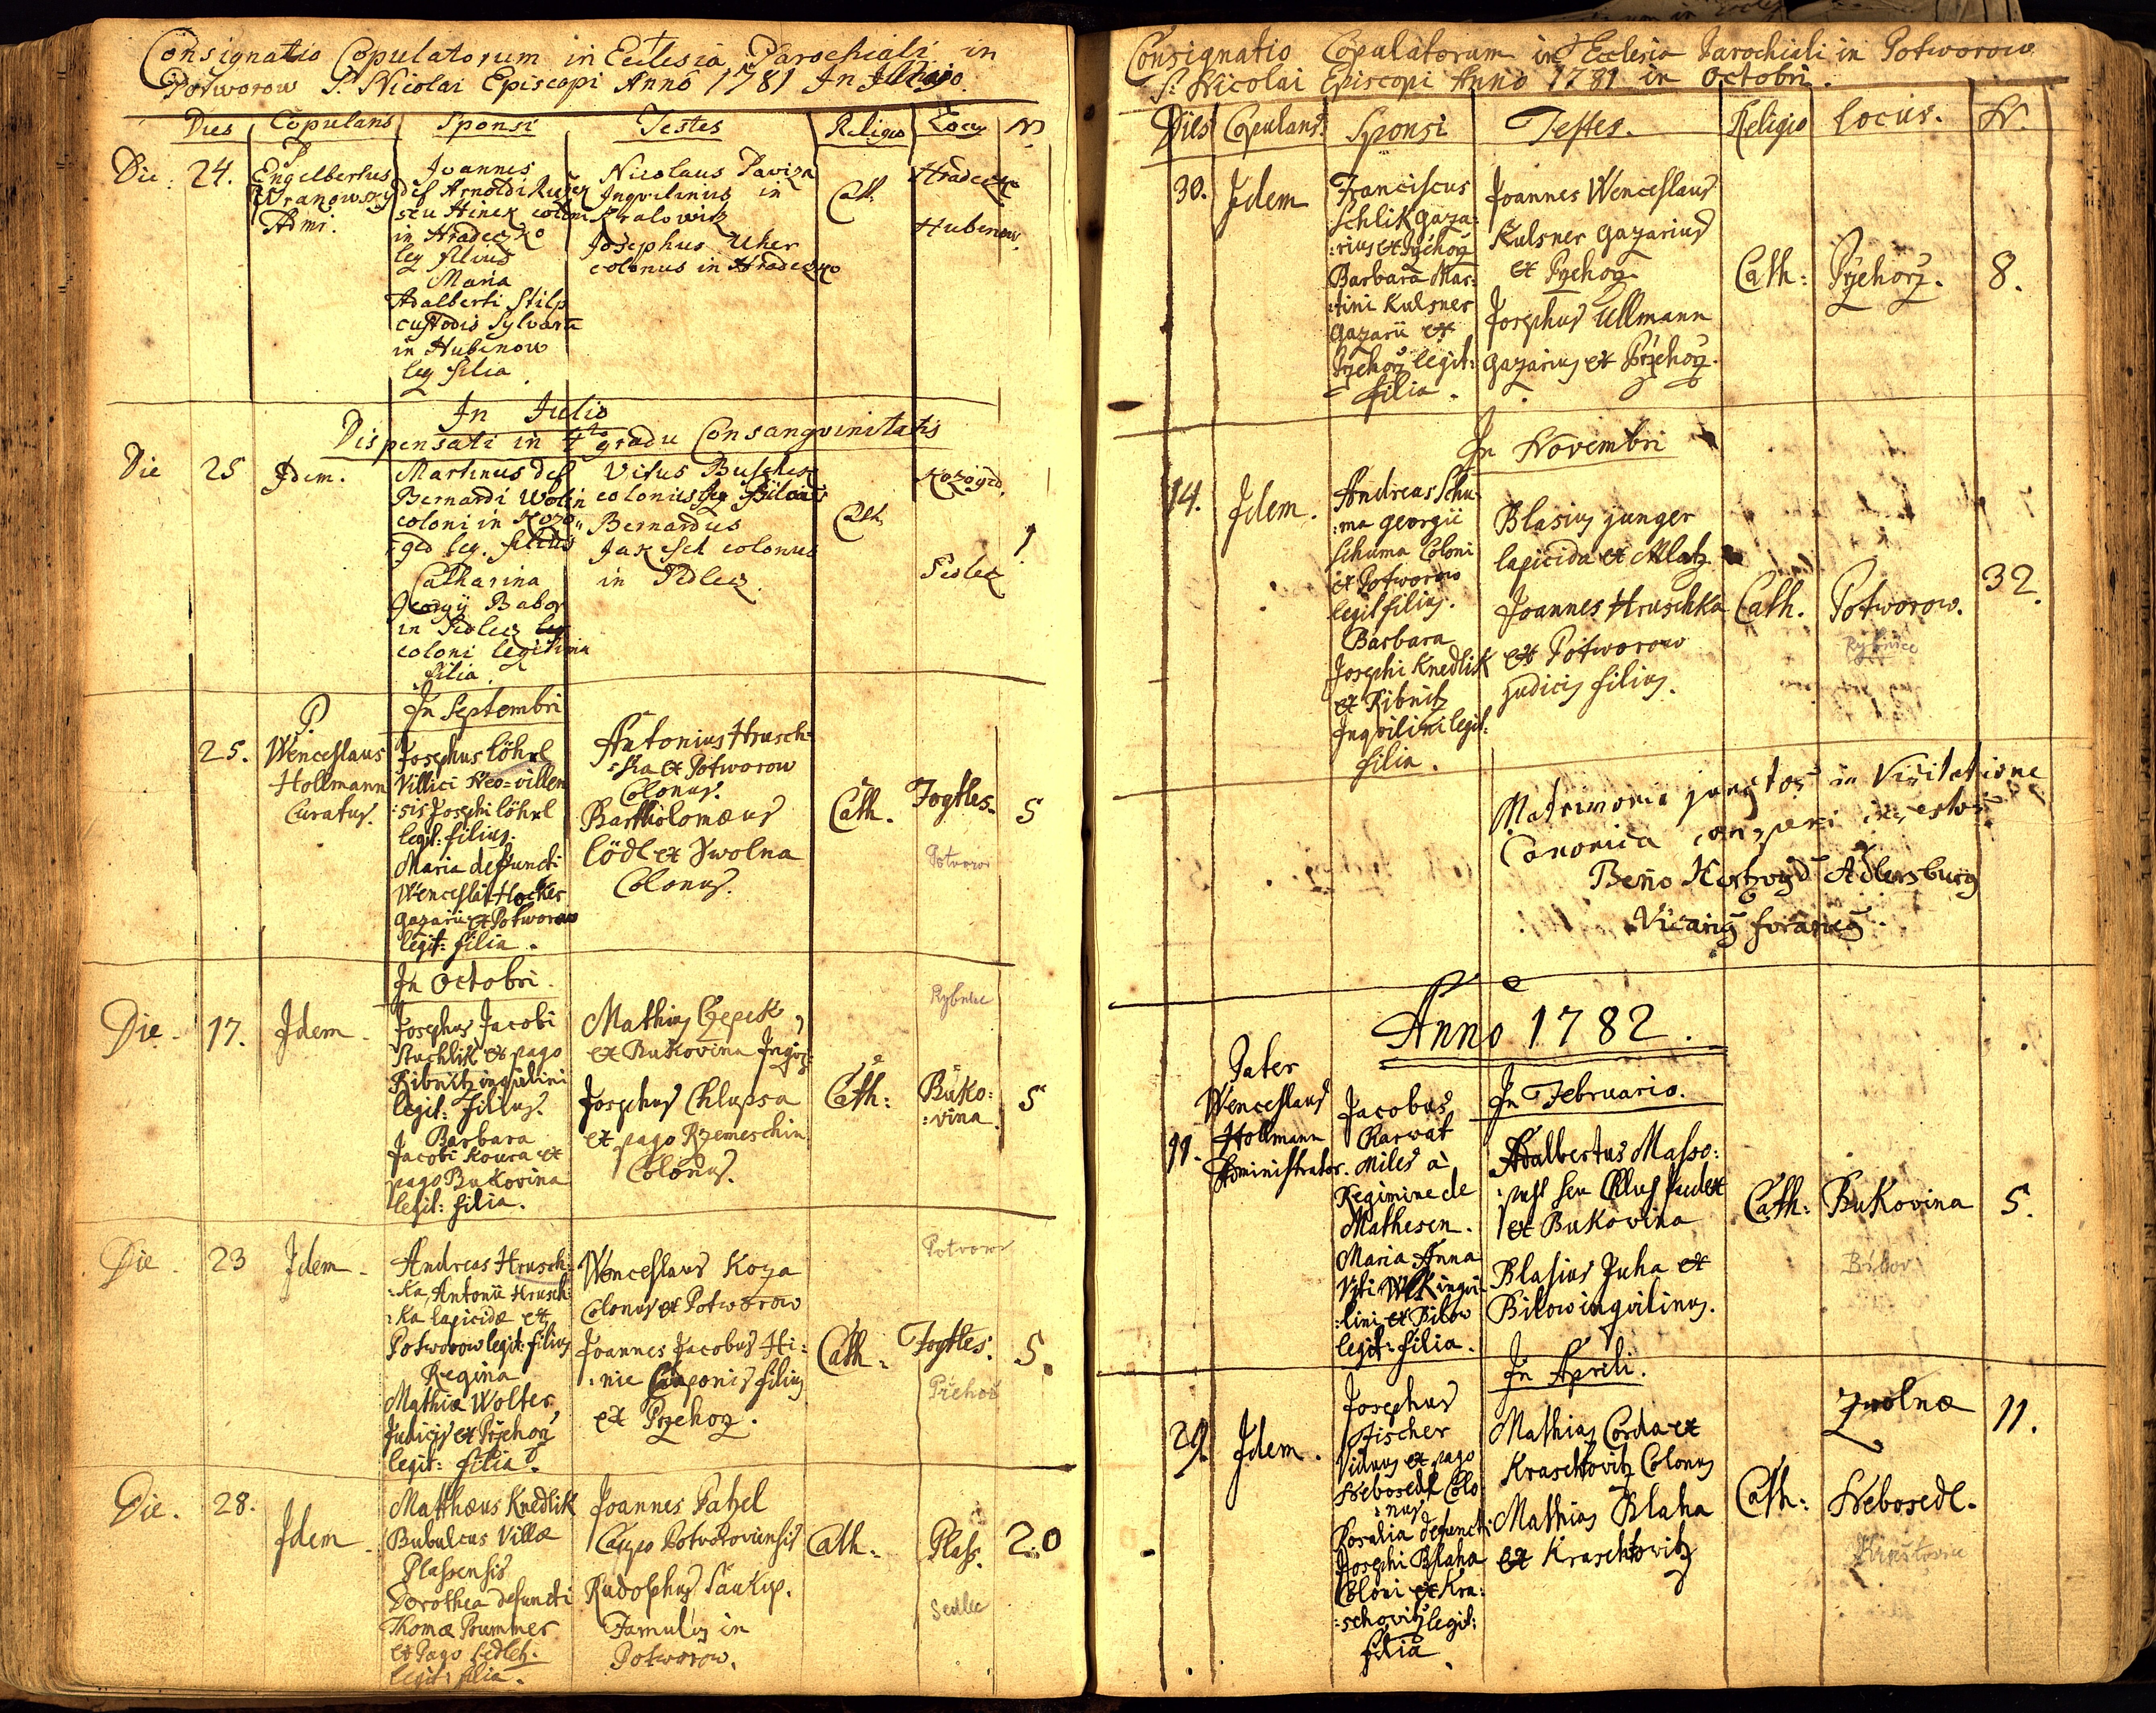 Consignatio Copulatorum in Ecclesia Parochiali in
Potworow S. Nicolai Episcopi Anno 1781 In
Dies Copulans Sponsi Testes Religio Locus N
Die 24.
P
Engelbertus
Wranowsky
Admi:
Joannes
def Arnoldi
seu Hinek
in Hradeczko
leg filius
Maria
Adalberti Stilp
custodis Sylvarū
in Hubenow
leg filia
Nicolaus Paviza
Inqvilinus in
Kralowitz
Josephus Uher
colonus in Hradeczko
Cath
Hradeczko
Hubenow
In Julio
Dispensati in 4to gradu Consangvinitatis
Die 25 Idem.
Martinus def
Bernardi Wolin
coloni in Kozo
ged leg. filius
Catharina
Georgij Babor
in Sedlez
coloni legitima
filia.
Vitus
colonus
Bernardus
colonus
in Sedlez
Cath
Kozoged.
Sedlez
In Septembri
25.
P.
Wenceslaus
Hollmann
Curatus.
Josephus Löhrl
Villici Neo=villen
:sis Josephi Löhrl
legit: filius.
Maria defuncti
Wenceslai
gazarii ex Potworow
legit: filia.
Antonius Hrusch=
=ka ex Potworow
Colonus.
Bartholomæus
Lödl ex Zwolna
Colonus.
Cath.
Potvorov
5
In Octobri.
Die 17. Idem
Josephus Jacobi
Stuchlik ex pago
Ribnitz inqvilini
legit: filius.
Barbara
Jacobi Koura ex
pago Bukovina
legit: filia.
Mathias
ex Bukovina
Josephus Chlupsa
ex pago Rzemeschin
Colonus.
Cath:
Rybnice
Buko:
:vina
5
Die 23 Idem
Andreas Hrusch:
:ka, Antonii Hrusch:
:ka lapicidæ ex
Potworow legit: filius
Regina
Mathiæ Wolter
Judicis ex Przehorz
legit: filia.
Wenceslaus Koza
Colonus ex Potworow
Joannes Jacobus Hi:
:nie Cauponis filius
ex Przehorz.
Cath:
Potvorov
Přehoř
5.
Die. 28. Idem
Matthæus Knedlik
Bubulcus Villæ
Plassensis
Dorothea defuncti
Thomæ Prummer
ex Pago Sedletz.
legit: filia.
Joannes Patzel
Caupo Potvoroviensis
Rudolphus Saukup.
Famulus in
Potworow.
Cath:
Plass.
Sedlec
20
Consignatio Copulatorum in Ecclesia Parochiali in Potworow
S. Nicolai Episcopi Anno 1781 in Octobri.
Dies Copulans Sponsi Testes. Religio Locus. N.
30. Idem
Franciscus
Schlik gaza:
:rius ex Przehorz
Barbara Mar:
:tini Kulsner
gazarii ex
Przehorz legit:
filia.
Joannes Wenceslaus
Kulsner gazarius
ex Przehorz
Josephus Ullmann
gazarius ex Przehorz.
Cath: Przehorz. 8.
In Novembri
14. Idem.
Andreas Schu:
:ma Georgii
Schuma Coloni
ex Potworow
legit filius.
Barbara
Josephi Knedlik
ex Ribnitz
Inqvilini legit:
filia.
Blasius Junger
lapicida ex Mlatz
Joannes Hruschka
ex Potworow
judicis filius.
Cath. Potworow.
Rybnice
32.
Matrimonia junctos in Visitatione
Canonica
Beno Adlersburg
Vicarius foraneus
Anno 1782.
In Februario.
11.
Pater
Wenceslaus
Hollmann
Administrator.
Jacobus
Charwat
Miles à
Regimine de
Mathesen.
Maria Anna
Viti Wlk inqvi:
:lini ex Bilow
legit: filia.
Adalbertus Masso:
:pust seu
ex Bukovina
Blasius Juha ex
Bilow inqvilinus.
Cath: Bukovina
Bílov
5.
In Aprili.
29. Idem.
Josephus
Fischer
Viduus ex pago
Nebosedl Colo:
:nus
Rosalia defuncti
Josephi Blaha
Coloni ex Kra:
:schovitz legit:
filia
Mathias Corda ex
Kraschtovitz Colonus
Mathias Blaha
ex Kraschtovitz
Cath:
Zwolnæ
Nebosedl.
11.